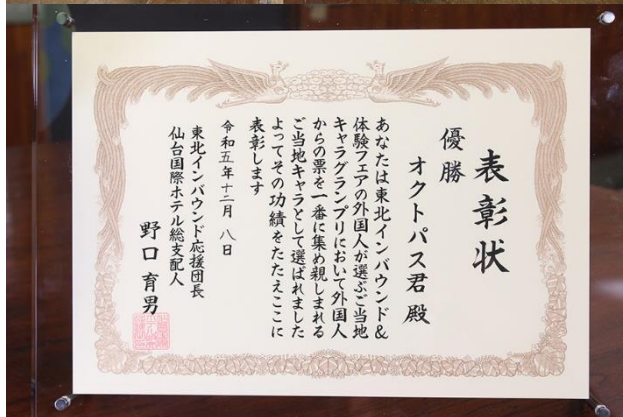 表彰状
優勝
オクトパス君 殿
あなたは東北インバウンド&
体験フェアの外国人が選ぶご当地
キャラグランプリにおいて外国人
からの票を一番に集め親しまれる
ご当地キャラとして選ばれました
よってその功績をたたえここに
表彰します
令和五年十二月 八日
東北インバウンド応援団長
仙台国際ホテル総支配人
野口 育男